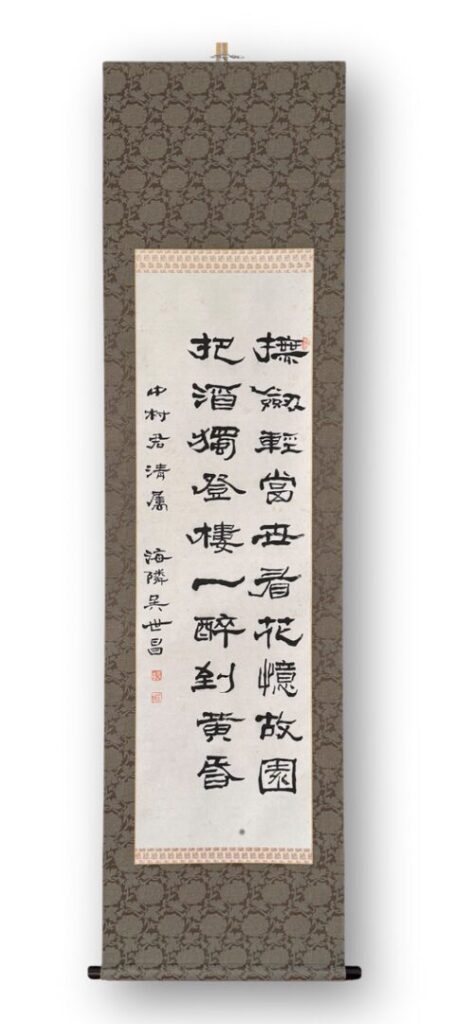 撫劔輕當世看花憶故園
把酒獨登樓一醉到黄昏
中村君清屬 海隣吳世昌